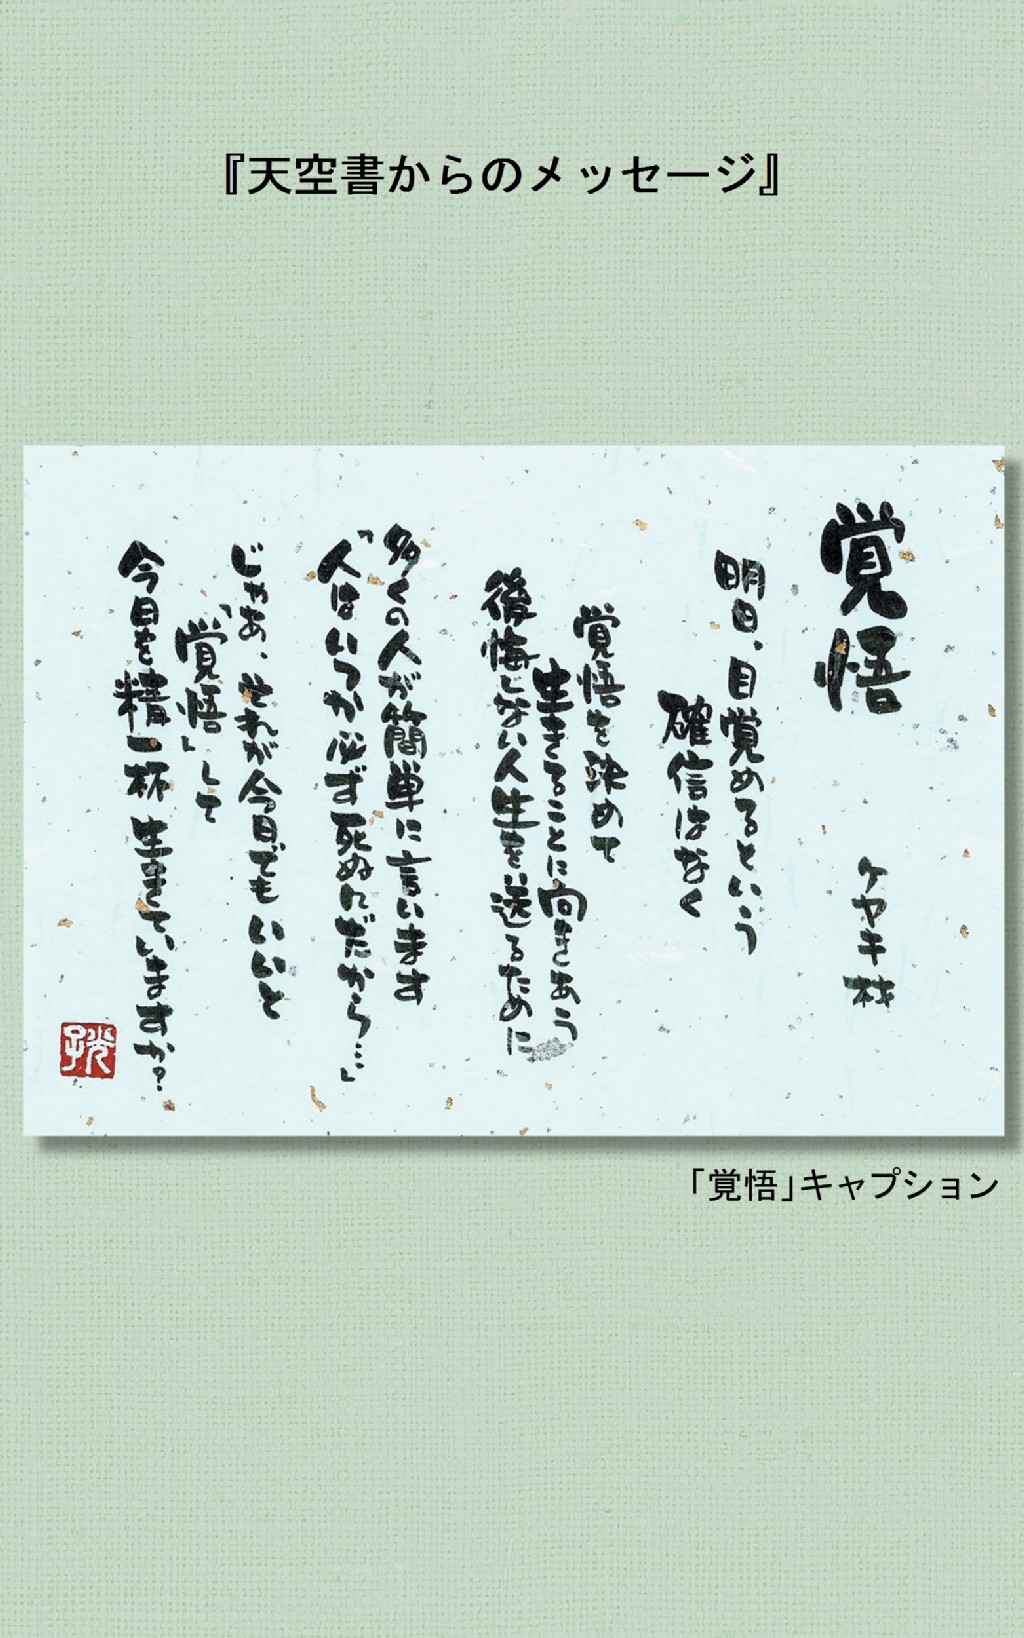 『天空書からのメッセージ』
覚悟
ケヤキ材
明日、目覚めるという
確信はなく
覚悟を決めて
生きることに向きあう
後悔しない人生を送るために
多くの人が簡単に言います
「人はいつか必ず死ぬんだから…」
じゃあ、それが今日でもいいと
「覚悟」して
今日を精一杯生きていますか?
「覚悟」キャプション